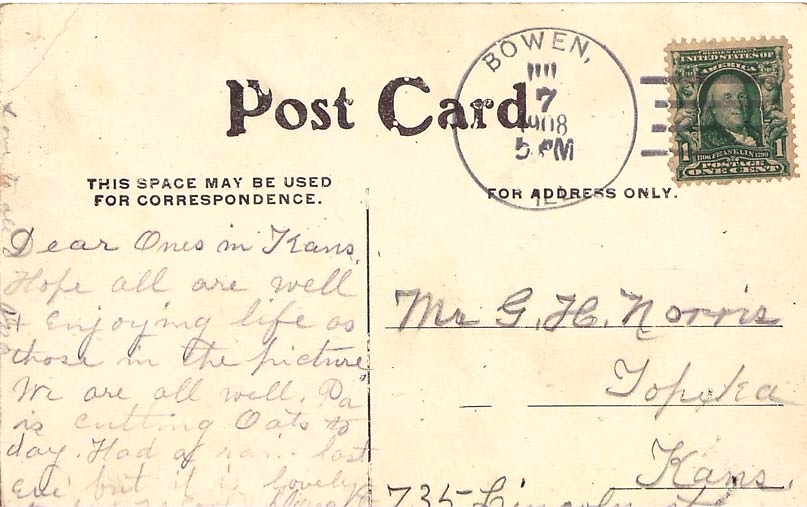 Post Card
BOWEN,
7
1908
5 PM
ILL
SERIES 1902
UNITED STATES OF
AMERICA
1706 FRANKLIN 1790
1 1
POSTAGE
ONE CENT
THIS SPACE MAY BE USED
FOR CORRESPONDENCE.
FOR ADDRESS ONLY.
Dear Ones in Kans.
Hope all are well
+ enjoying life as
those in the picture
We are all well. Pa
is cutting Oats to
day. Had a rain last
eve but it is lovely
Mr G. H. Norris
Topeka
Kans.
735 Lincoln st
Love to all